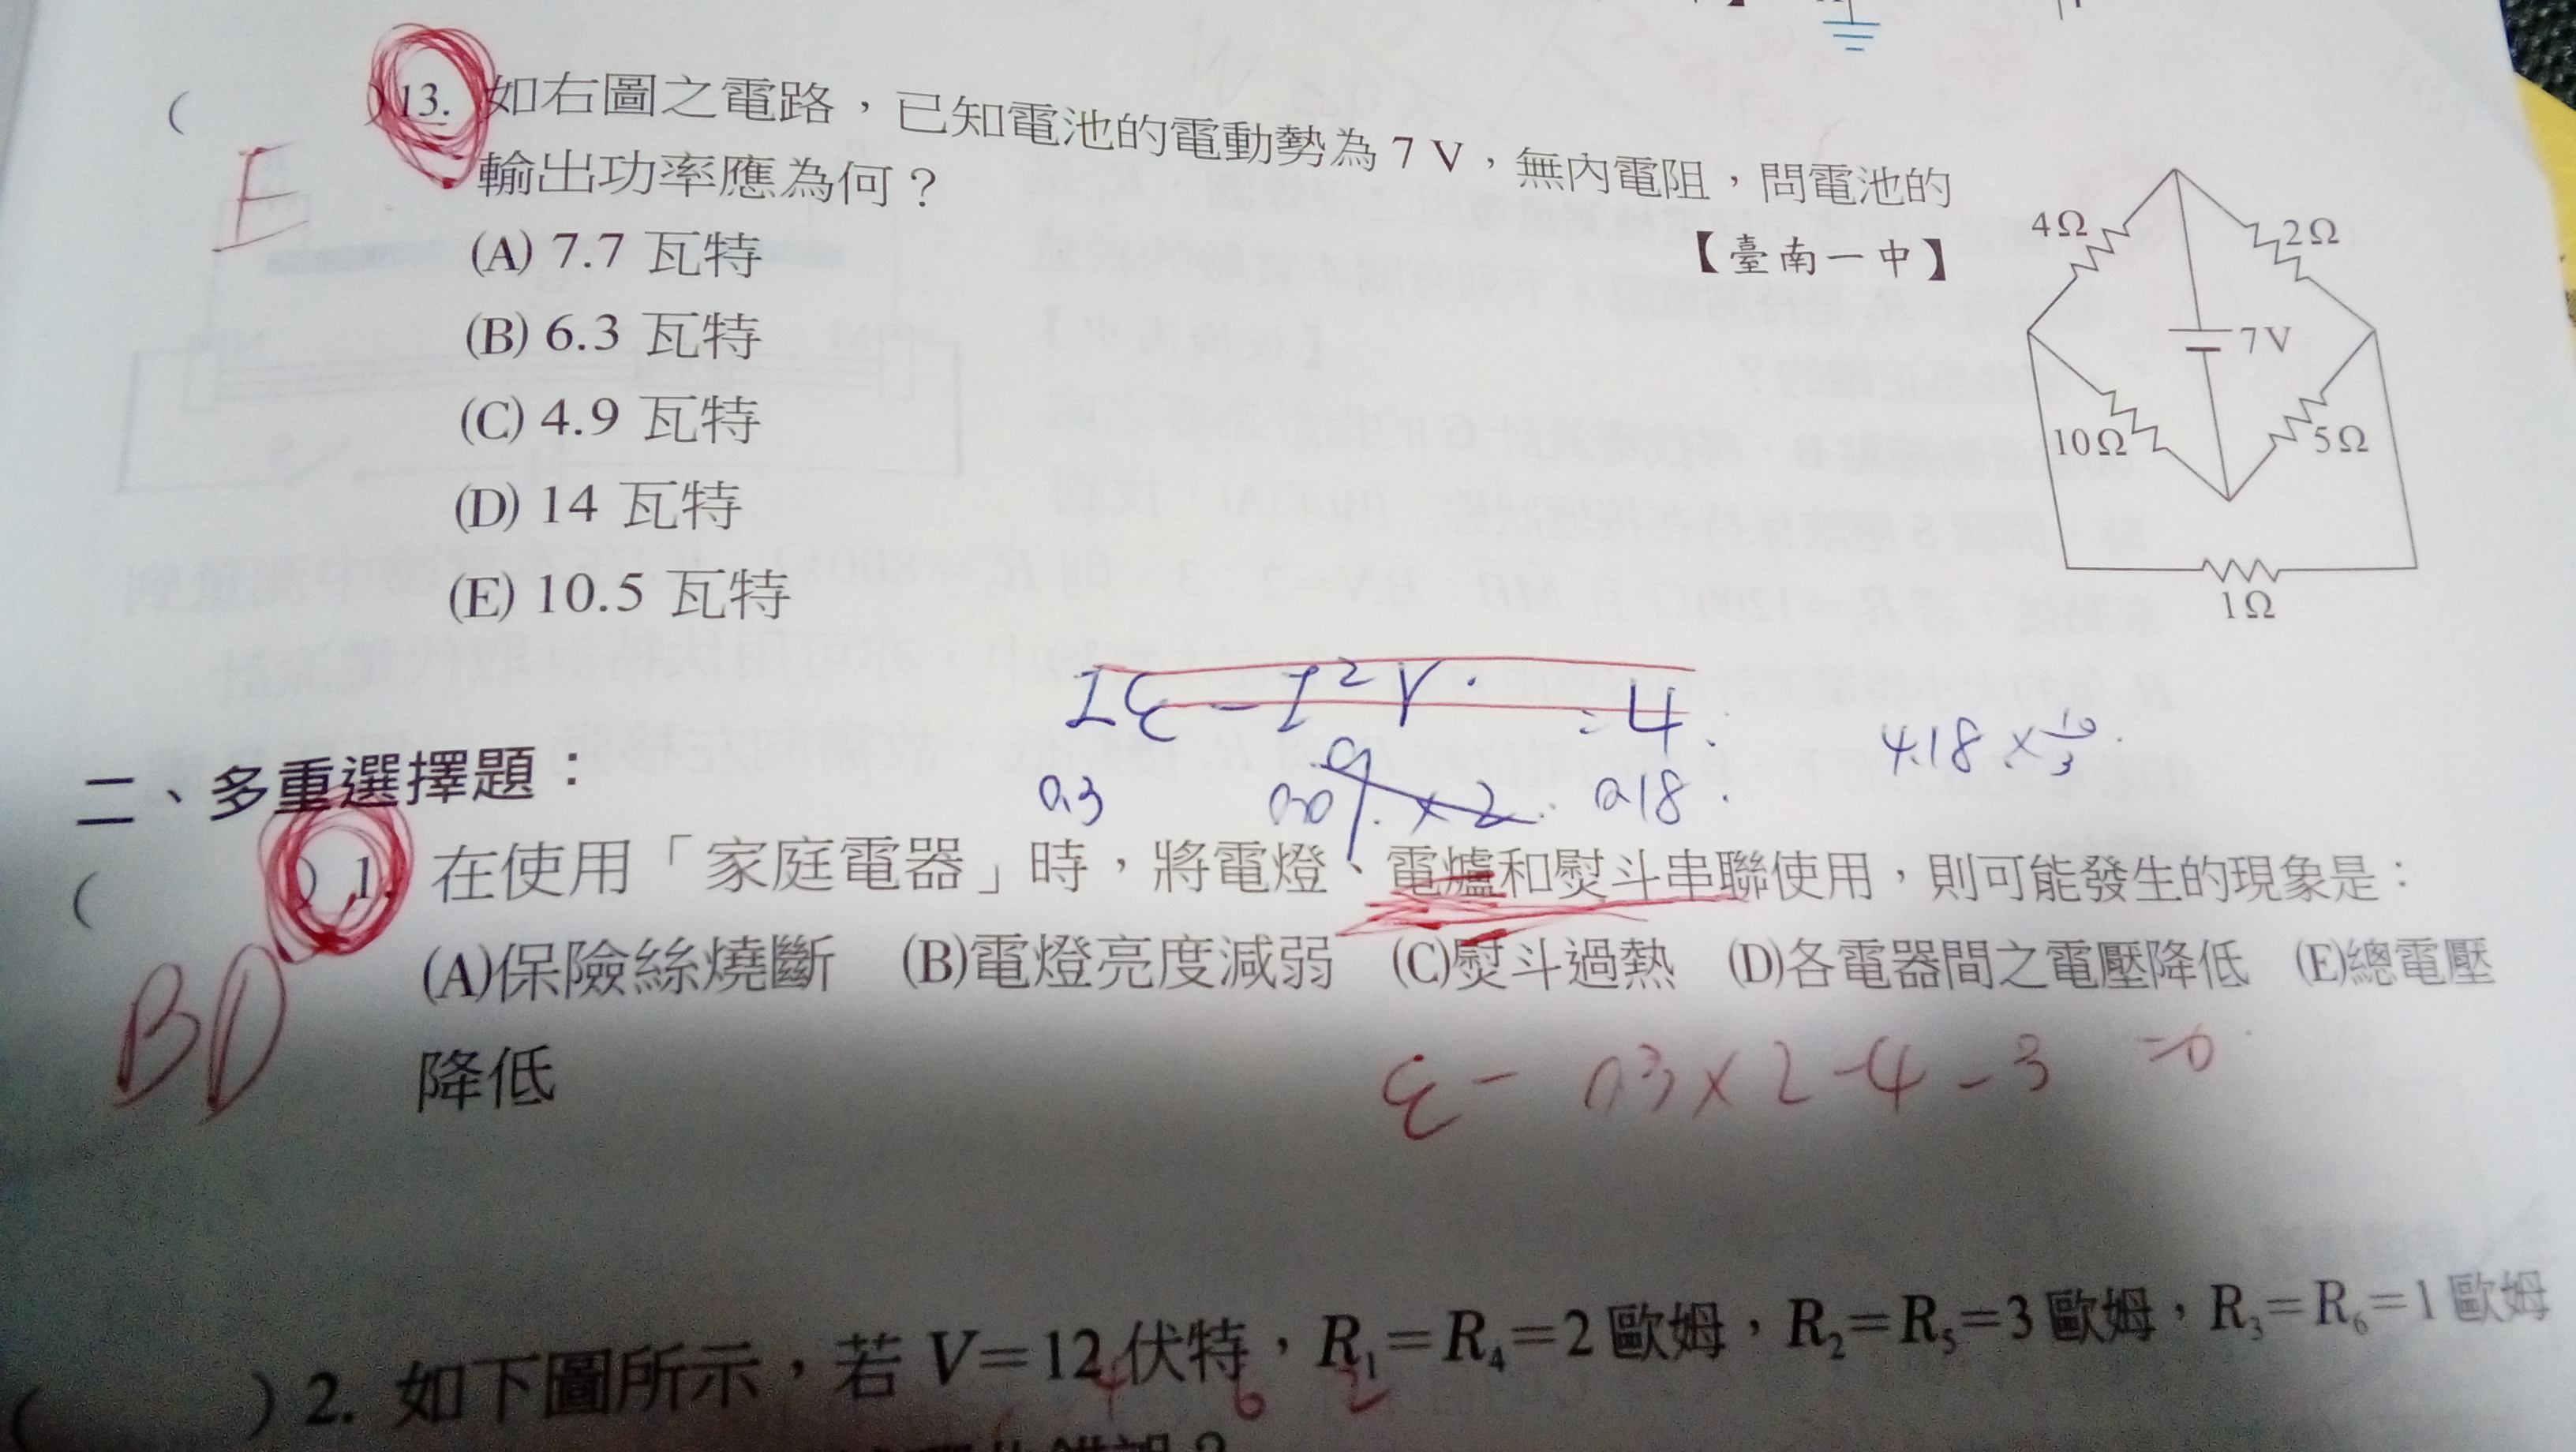 ( )13. 如右圖之電路，已知電池的電動勢為 7 V，無內電阻，問電池的
輸出功率應為何？
【臺南一中】
E
(A) 7.7 瓦特
(B) 6.3 瓦特
(C) 4.9 瓦特
(D) 14 瓦特
(E) 10.5 瓦特
4Ω
2Ω
7V
10Ω
5Ω
1Ω
4.18 × 10/3
0.3
× 2
0.18
二、多重選擇題：
( ) 1. 在使用「家庭電器」時，將電燈、電爐和熨斗串聯使用，則可能發生的現象是：
(A)保險絲燒斷 (B)電燈亮度減弱 (C)熨斗過熱 (D)各電器間之電壓降低 (E)總電壓
降低
BD
ε - 0.3 × 2 - 4 - 3 = 0
( ) 2. 如下圖所示，若 V=12 伏特，R₁=R₄=2 歐姆，R₂=R₅=3 歐姆，R₃=R₆=1 歐姆
4 6 2